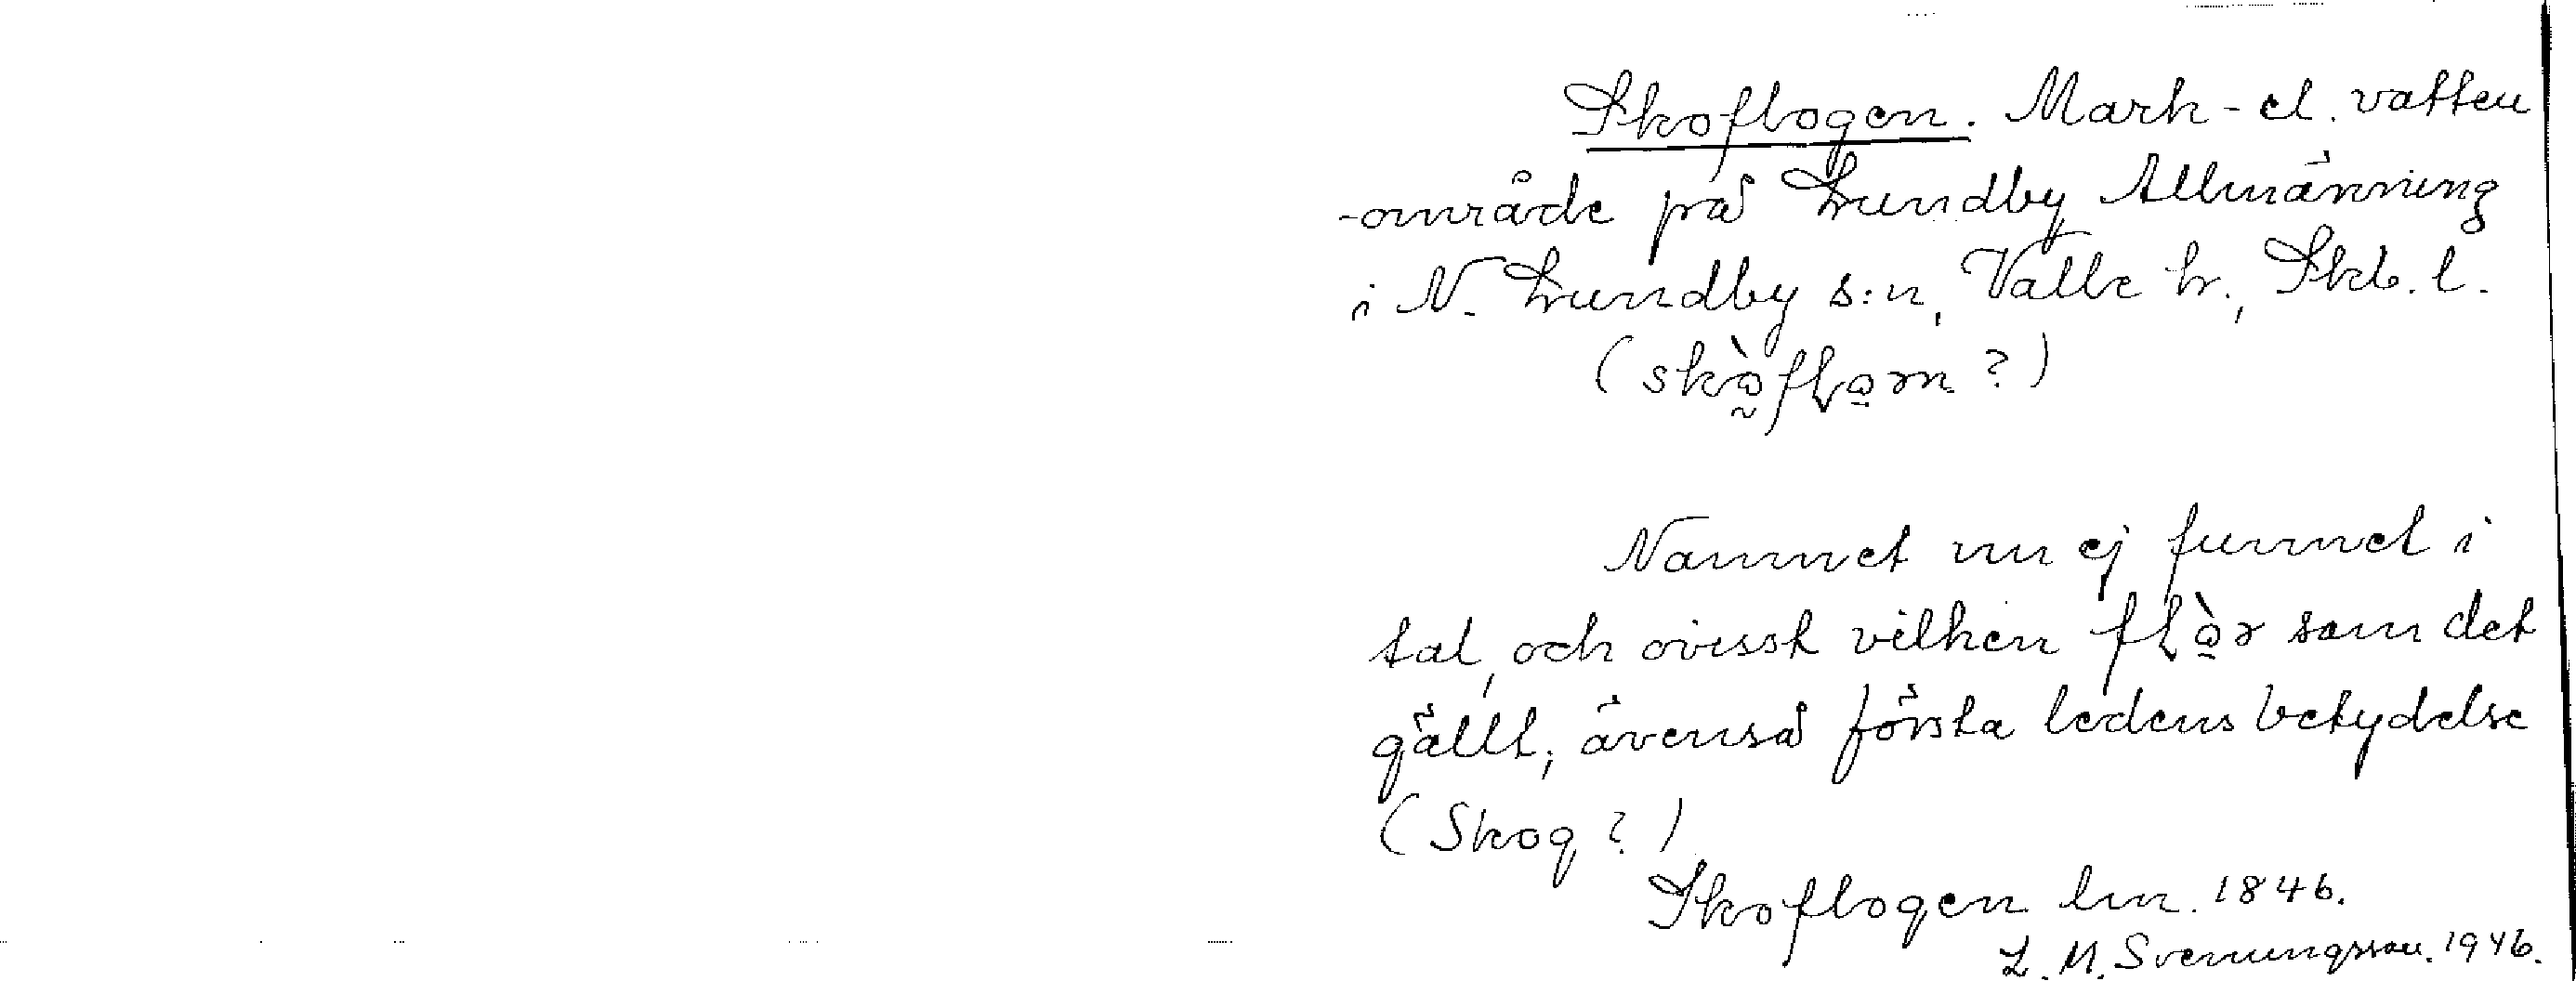 Skoflogen. Mark- el. vatten
-område på Lundby Allmänning
i N. Lundby s:n, Valle hr., Skb. l.
(skò̰flo̠ɤn?)
Namnet nu ej funnet i
tal, och ovisst vilken flò̠ɤ som det
gällt, ävenså första ledens betydelse
(Skog?)
Skoflogen lm. 1846.
L. M. Svenungsson. 1946.